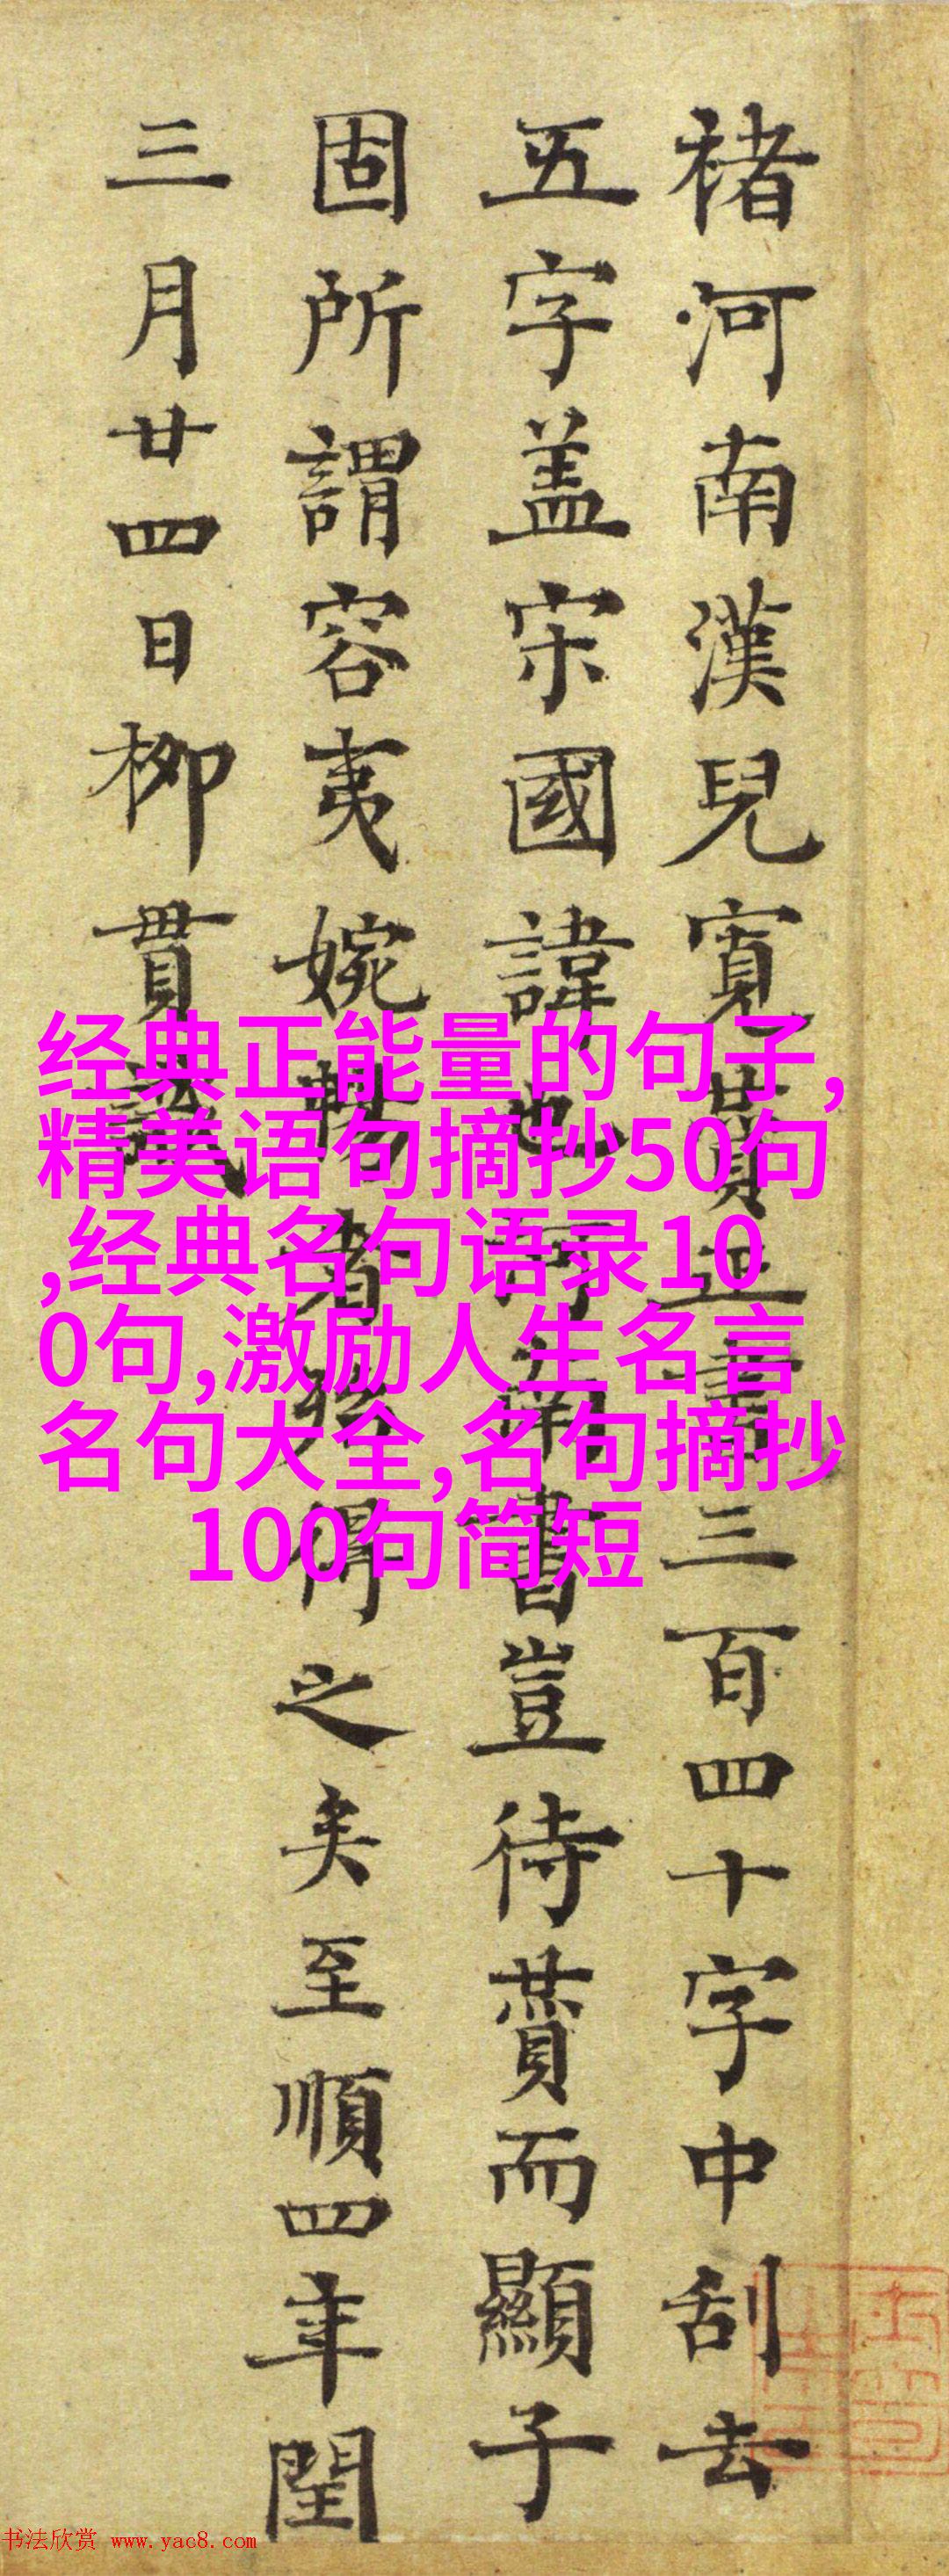 褚河南漢兒寬贊正書三百四十字中刮去
五字盖宋國諱也河南書豈待贊而顯子
固所謂容夷婉暢者殆得之矣至順四年閏
三月廿四日柳貫識
经典正能量的句子,
精美语句摘抄50句
,经典名句语录10
0句,激励人生名言
名句大全,名句摘抄
100句简短
书法欣赏 www.yac8.com